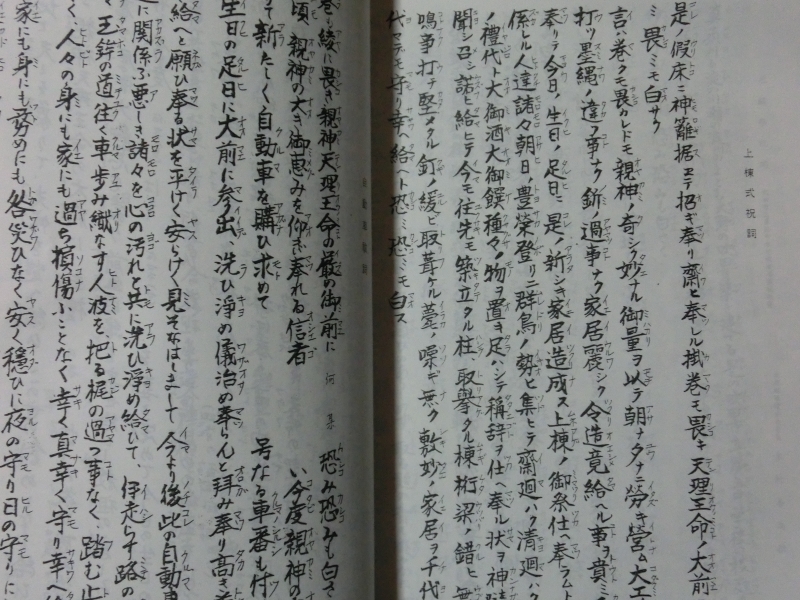 上棟式祝詞
是ノ假床ニ神籬据エテ招ギ奉リ齋ヒ奉レル掛巻モ畏キ天理王命ノ大前
ミ畏ミモ白サク
言ハ巻クモ畏カレドモ親神ノ奇シク妙ナル御量ヲ以テ朝ナタナニ労キ営ム大工
打ツ墨縄ノ違フ事ナク釿ノ過事ナク家居震シク令造竟給ヘル事ヲ貴ミ
奉リテ今日ノ生日ノ足日ニ是ノ新シキ家居造成ス上棟ノ御祭仕ヘ奉ラムト
係レル人達諸々朝日ノ豊榮登リニ群鳥ノ勢ヒ集ヒテ齋廻ハリ清廻ハリ
ノ禮代ト大御酒大御饌種々ノ物ヲ置キ足ハシテ稱辞ヲ仕ヘ奉ル状ヲ神
聞シ召シ諾ヒ給ヒテ今モ往先モ築立タル柱、取擧タル棟桁梁ノ錯ヒ無
鳴事打チ堅メタル釘ノ緩ヒ取葺ケル甍ノ噪ギ無ク敷妙ノ家居ヲ千代
代マデモ守リ幸ヘ給ヘト恐ミ恐ミモ白ス
巻も綾に畏き親神天理王命の厳の御前に 何某 恐み恐みも白さ
頃親神の大き御恵みを仰ぎ奉れる信者 い今度親神の
て新たしく自動車を購ひ求めて 号なる車番も付
生日の足日に大前に参出、洗ひ淨めの儀治め奉らんと拝み奉り高き
給へと願ひ奉る状を平けく安らけく見そなはしまして今より後此の自動車
に関係ふ悪しき諸々を心の汚れと共に洗ひ淨め給ひて、伊走らす路の
く王鉾の道往く車歩み織なす人波を把る梶の過つ事なく、踏む止
く、人々の身にも家にも過ち損傷ふことなく幸く真幸く守り幸へ
家にも身にも務めにも咎災ひなく安く穏ひに夜の守り日の守りに